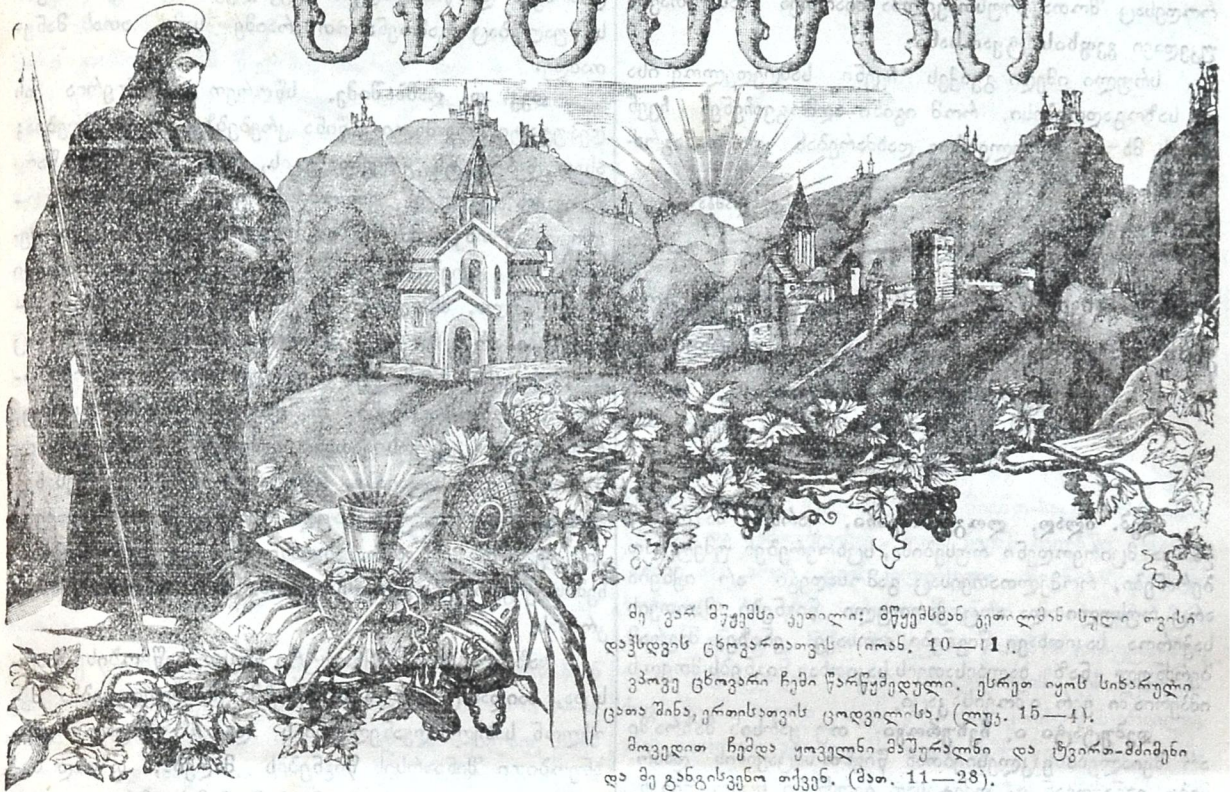 მე ვარ მწყემსი კეთილი: მწყემსმან კეთილმან სული თვისი
დაჰსდვის ცხოვართათვის (იოან. 10—11).
ვპოვე ცხოვარი ჩემი წარწყმედული. ესრეთ იყოს სიხარული
ცათა შინა, ერთისათვის ცოდვილისა. (ლუკ. 15—4).
მოვედით ჩემდა ყოველნი მაშურალნი და ტვირთ-მძიმენი
და მე განგისვენო თქვენ. (მათ. 11—28).